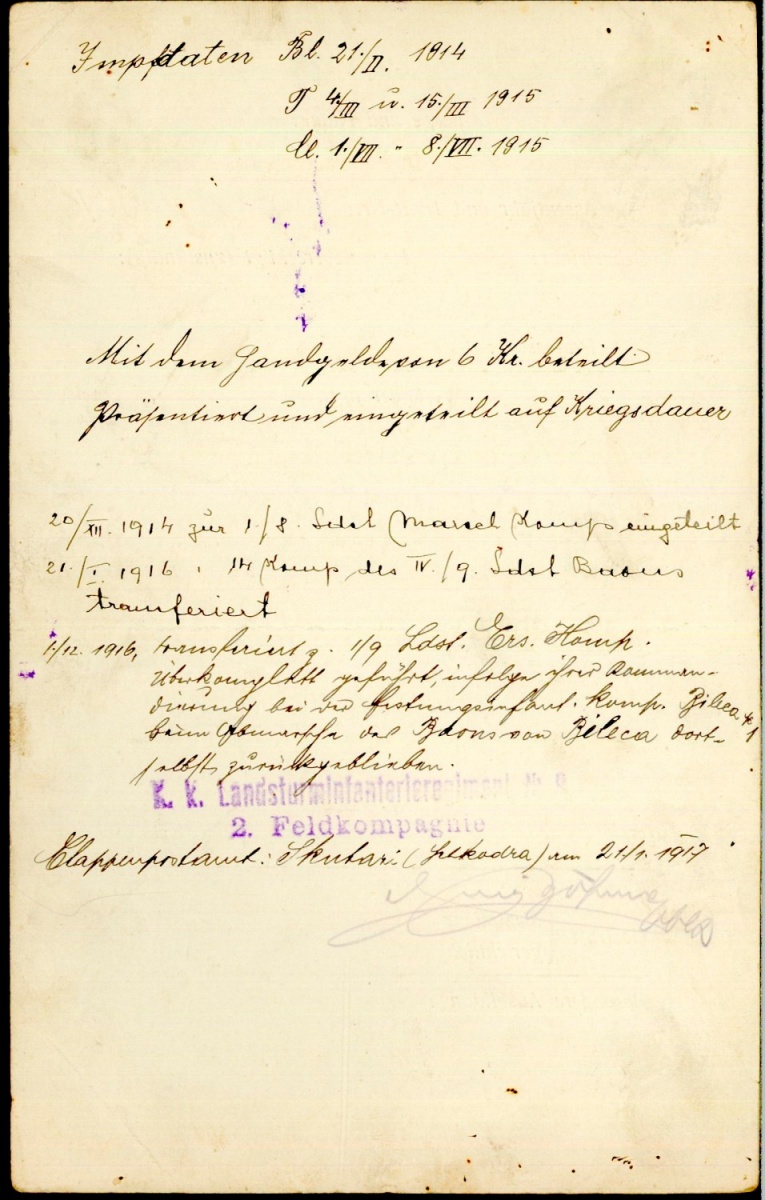 Impfdaten Bl. 21./II. 1914
T 4/III u. 15./III 1915
Cl. 1./VII. " 8./VII. 1915
Mit dem Handgelde von 6 Kr. beteilt
Präsentiert und eingeteilt auf Kriegsdauer
20/XII. 1914 zur 1/8. Ldst Marsch Komp eingeteilt
21./I. 1916 " 14 Komp des IV./9. Ldst Baons
transferiert
1./12. 1916, transferiert z. 1/9 Ldst. Ers. Komp.
überkomplett geführt, infolge ihrer Komman-
dierung bei der Festungsinfant. Komp. Bileca № 1
beim Abmarsche des Baons von Bileca dort-
selbst zurückgeblieben.
K. k. Landsturminfanterieregiment Nr. 9
2. Feldkompagnie
Etappenpostamt: Skutari (Schkodra) am 21/1. 1917